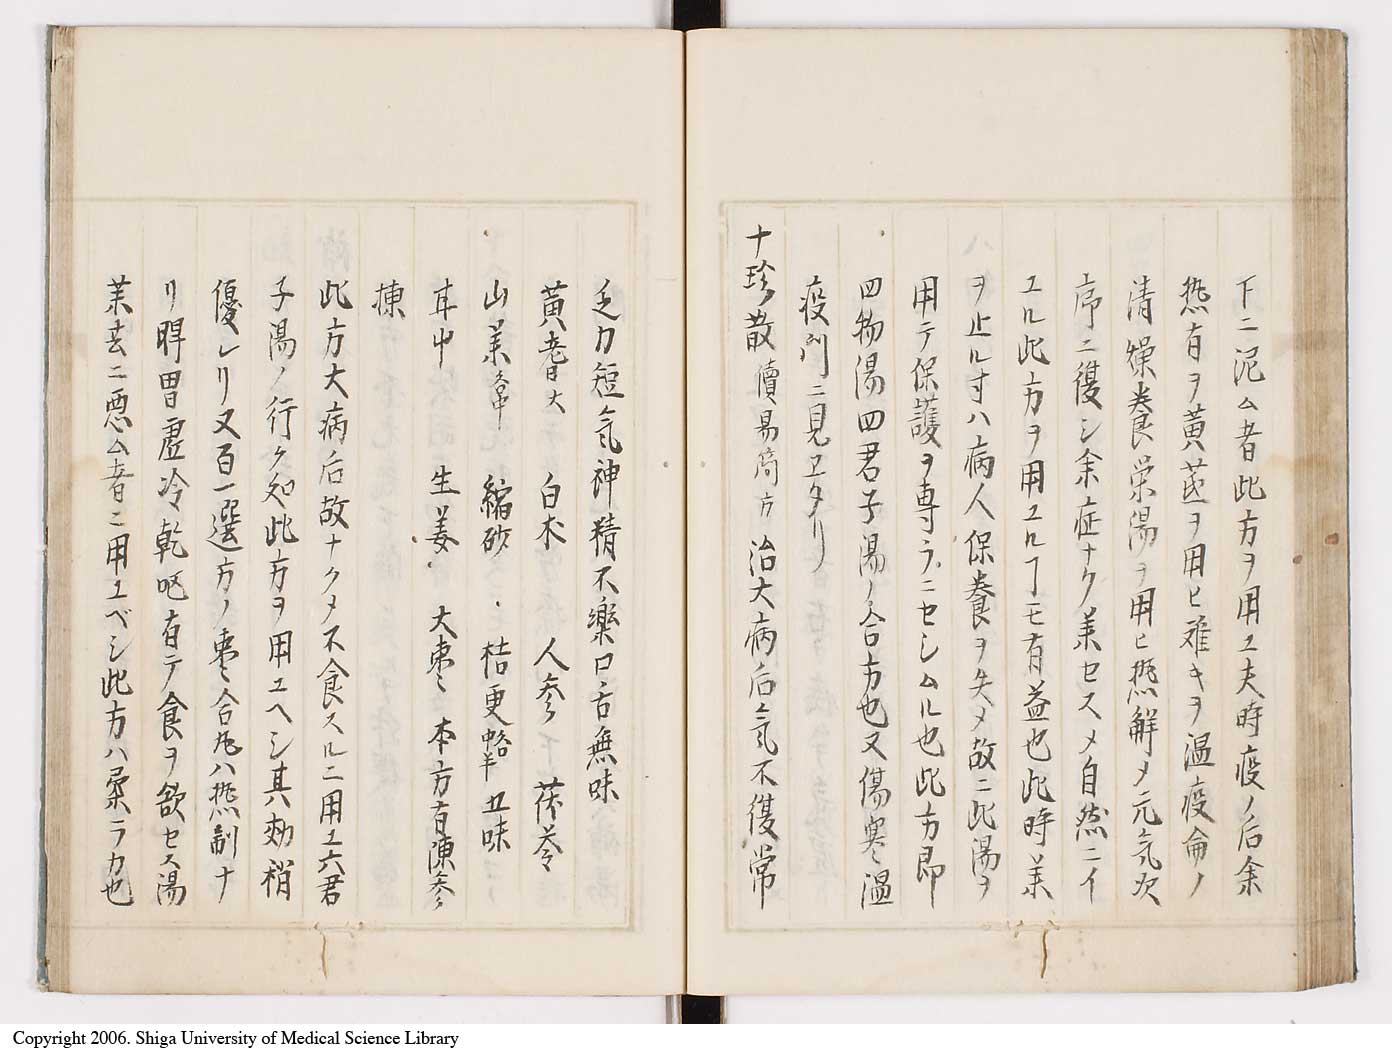 下ニ泥ム者此方ヲ用ユ夫時疫ノ后余
熱有ヲ黄芪ヲ用ヒ难キヲ温疫侖ノ
清燥養栄湯ヲ用ヒ熱解メ元気次
序ニ復シ余症ナク薬セスメ自然ニイ
ユル此方ヲ用ユルヿモ有益也此時薬
ヲ止ル寸ハ病人保養ヲ失メ故ニ此湯ヲ
用テ保護ヲ専ラニセシムル也此方即
四物湯四君子湯ノ合方也又傷寒温
疫門ニ見ヱタリ
十珍散續易簡方 治大病后気不復常
乏力短気神精不樂口舌無味
黄耆大 白朮 人参 茯苓
山薬各中 縮砂 桔更略 五味
甘中 生姜 大棗 本方有陳参
揀
此方大病后故ナクメ不食スルニ用ユ六君
子湯ノ行ク処此方ヲ用ユヘシ其効稍
優レリ又百一選方ノ棗合丸ハ熱制ナ
リ脾胃虚冷乾呕有テ食ヲ欲セス湯
薬去ニ悪ム者ニ用ユベシ此方ハ柔ラカ也
Copyright 2006. Shiga University of Medical Science Library